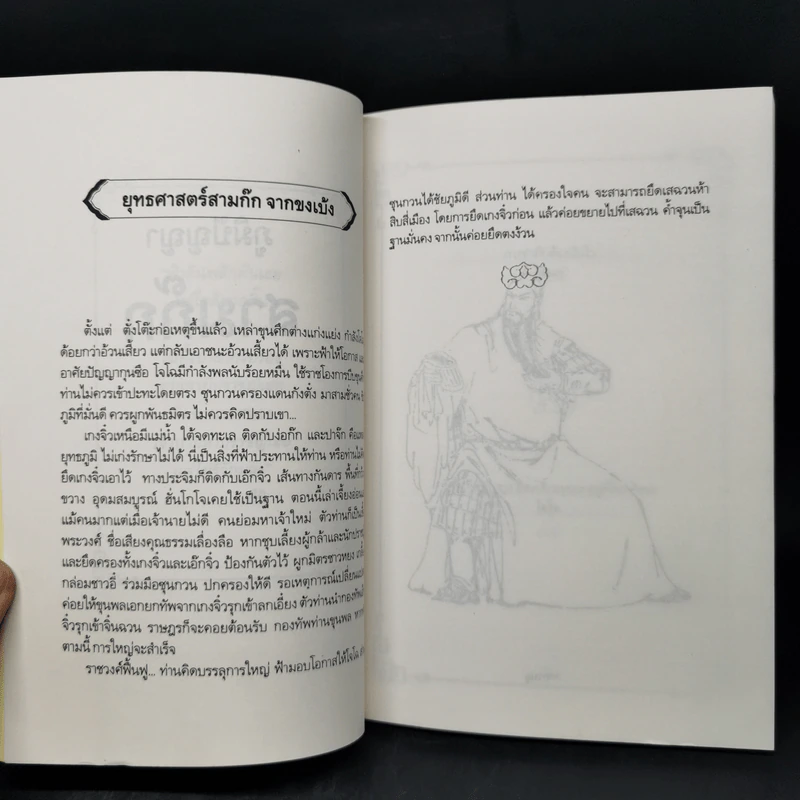 ยุทธศาสตร์สามก๊ก จากขงเบ้ง
ตั้งแต่ ตั๋งโต๊ะก่อเหตุขึ้นแล้ว เหล่าขุนศึกต่างแก่งแย่ง
ด้อยกว่าอ้วนเสี้ยว แต่กลับเอาชนะอ้วนเสี้ยวได้ เพราะฟ้าให้โอกาส
อาศัยปัญญากุนซือ โจโฉมีกำลังพลนับร้อยหมื่น ใช้ราชโองการบีบขุนศึก
ท่านไม่ควรเข้าปะทะโดยตรง ซุนกวนครองแดนกังตั๋ง มาสามชั่วคน
ภูมิที่มั่นดี ควรผูกพันธมิตร ไม่ควรคิดปราบเขา...
เกงจิ๋วเหนือมีแม่น้ำ ใต้จดทะเล ติดกับง่อก๊ก และปาจ๊ก
ยุทธภูมิ ไม่เก่งรักษาไม่ได้ นี่เป็นสิ่งที่ฟ้าประทานให้ท่าน หรือท่าน
ยึดเกงจิ๋วเอาไว้ ทางประจิมก็ติดกับเอ๊กจิ๋ว เส้นทางกันดาร พื้นที่
ขวาง อุดมสมบูรณ์ ฮั่นโกโจเคยใช้เป็นฐาน ตอนนี้เล่าเจี้ยง
แม้คนมากแต่เมื่อเจ้านายไม่ดี คนย่อมหาเจ้าใหม่ ตัวท่านก็เป็น
พระวงศ์ ชื่อเสียงคุณธรรมเลื่องลือ หากชุบเลี้ยงผู้กล้าและ
และยึดครองทั้งเกงจิ๋วและเอ๊กจิ๋ว ป้องกันตัวไว้ ผูกมิตรชาวหยง
กล่อมชาวอี๋ ร่วมมือซุนกวน ปกครองให้ดี รอเหตุการณ์
ค่อยให้ขุนพลเอกยกทัพจากเกงจิ๋วรุกเข้าลกเอี๋ยง ตัวท่านนำกองทัพ
จิ๋วรุกเข้าจิ่นฉวน ราษฎรก็จะคอยต้อนรับ กองทัพท่านขุนพล
ตามนี้ การใหญ่จะสำเร็จ
ราชวงศ์ฟื้นฟู... ท่านคิดบรรลุการใหญ่ ฟ้ามอบโอกาสให้โจโฉ
ซุนกวนได้ชัยภูมิดี ส่วนท่าน ได้ครองใจคน จะสามารถยึดเสฉวนห้า
สิบสี่เมือง โดยการยึดเกงจิ๋วก่อน แล้วค่อยขยายไปที่เสฉวน ค้ำจุนเป็น
ฐานมั่นคง จากนั้นค่อยยึดตงง้วน